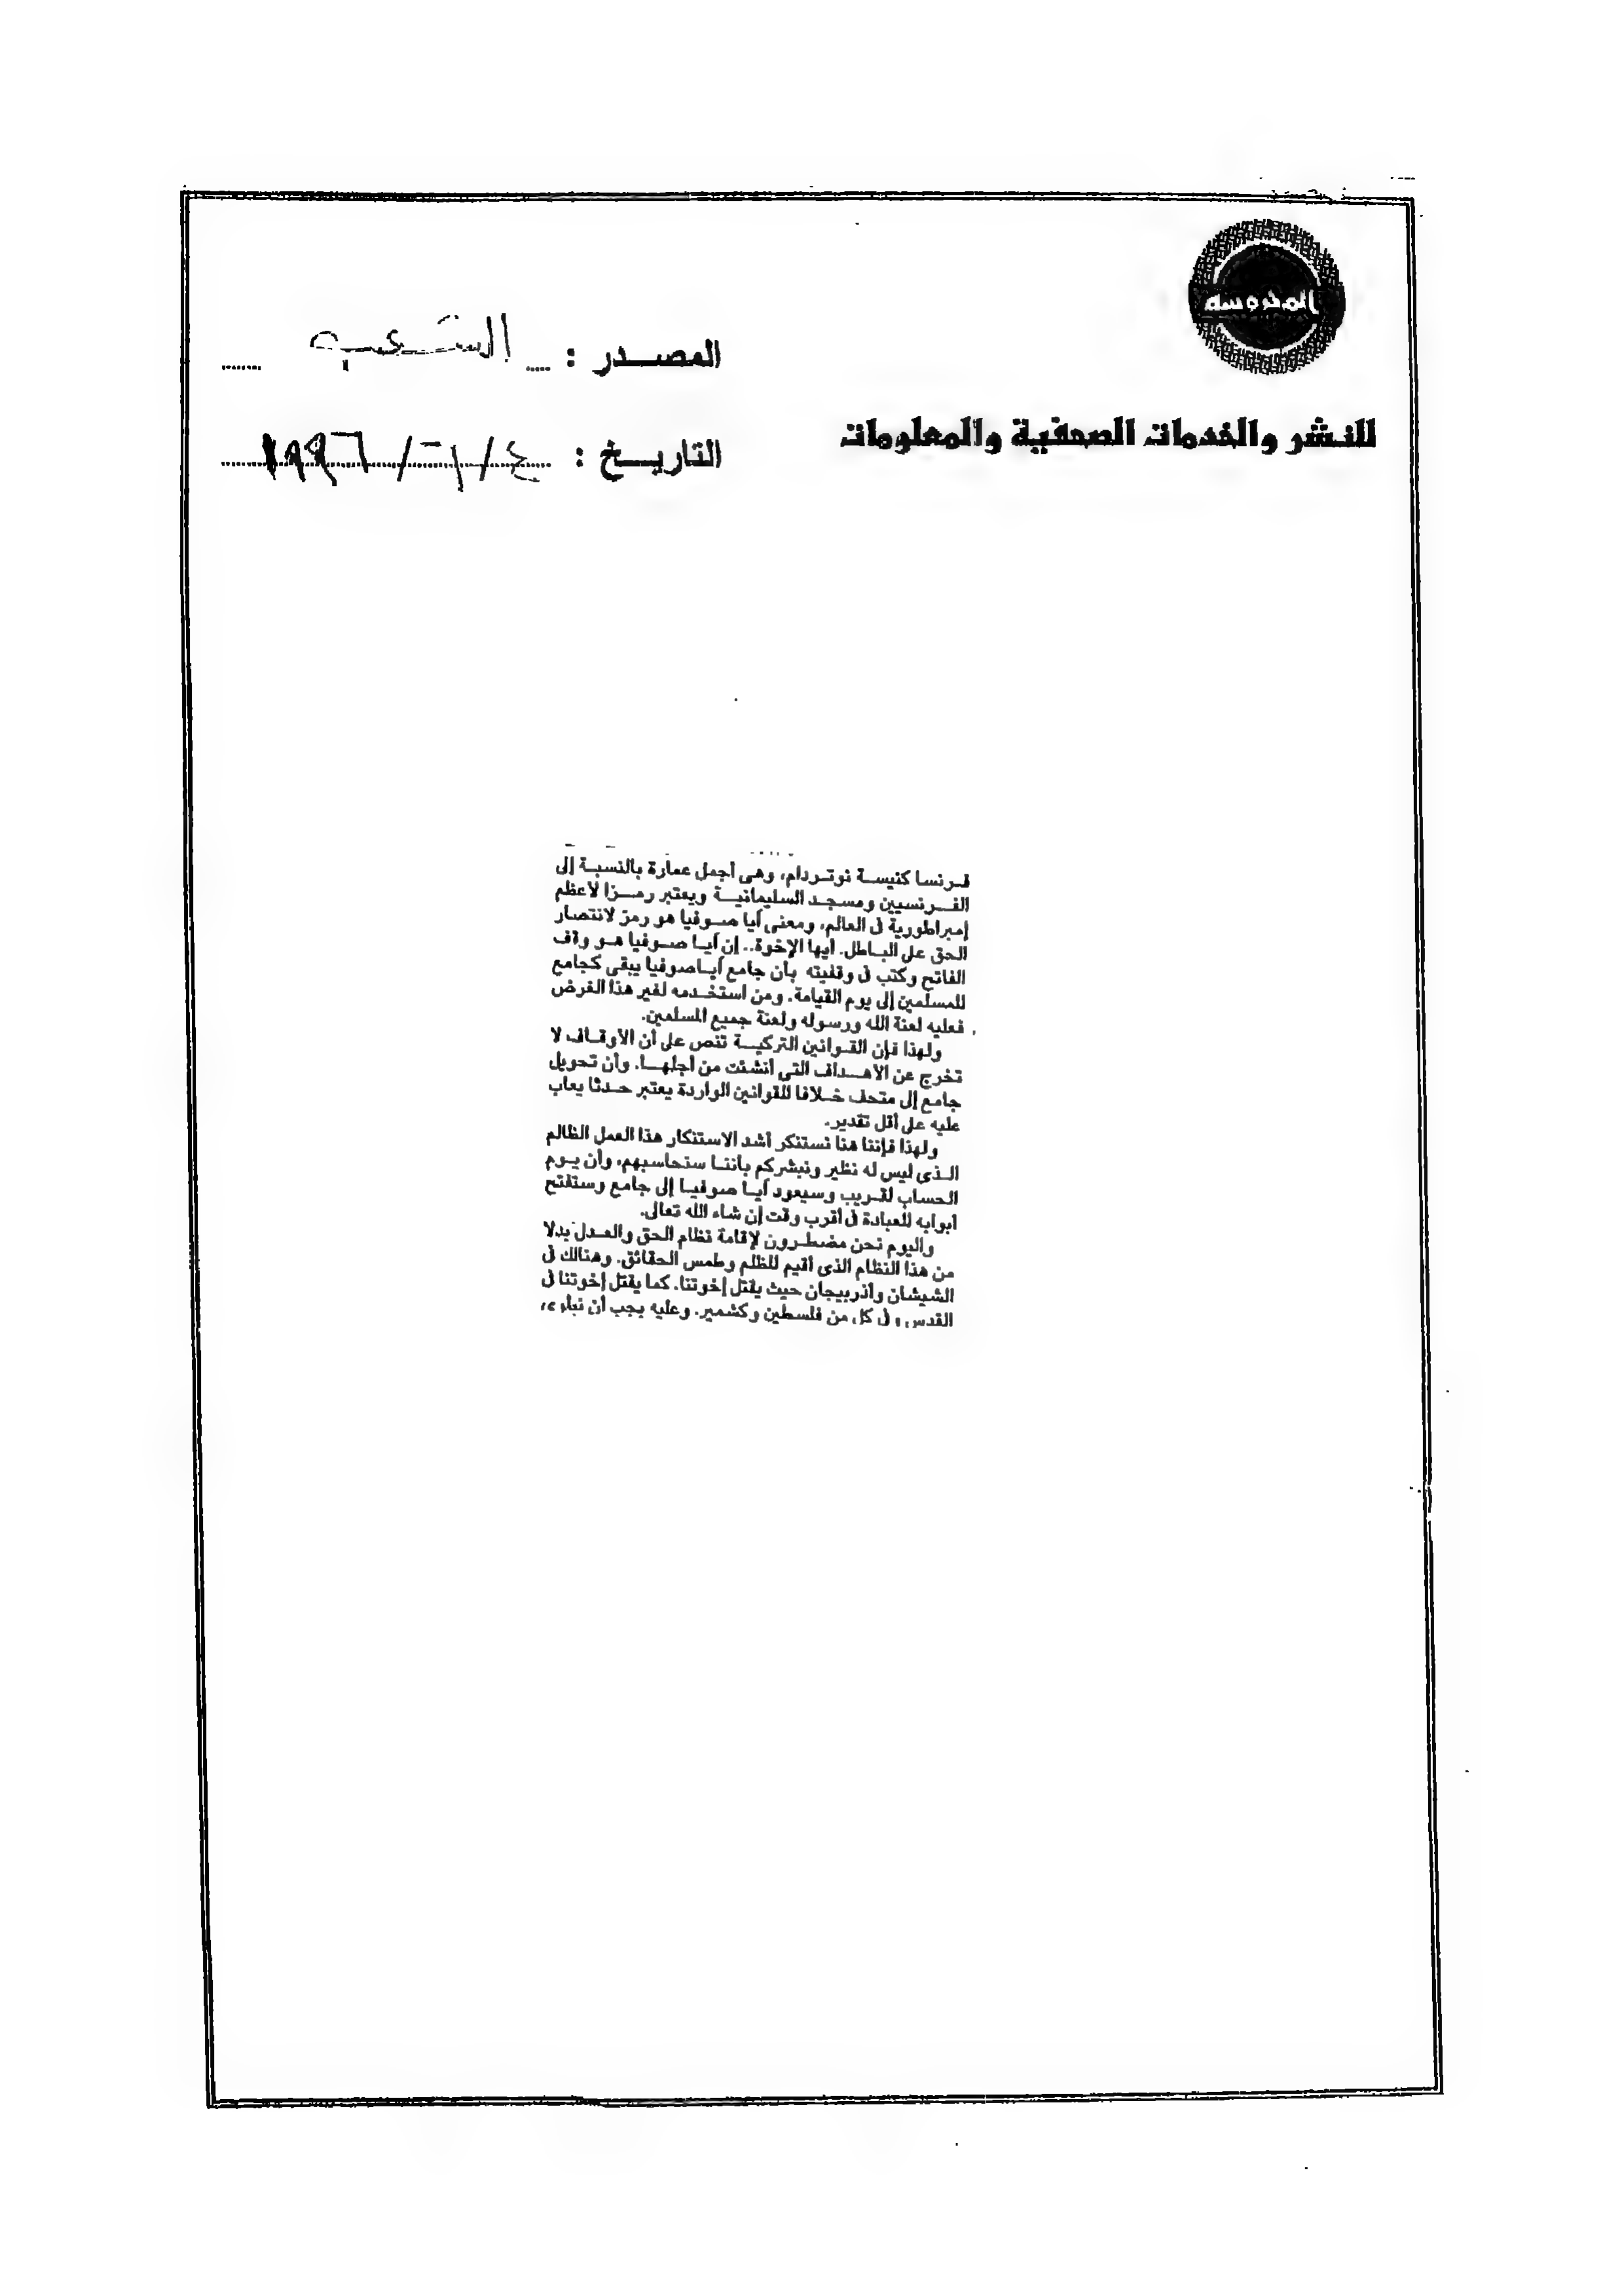 المحروسه
المصدر : الشعب
للنشر والخدمات الصحفية والمعلومات
التاريخ : ٤/ ٦/ ١٩٩٦
فرنسا كنيسة نوتردام، وهى أجمل عمارة بالنسبة إلى
الفرنسيين ومسجد السليمانية ويعتبر رمزا لأعظم
إمبراطورية فى العالم، ومعنى أيا صوفيا هو رمز لانتصار
الحق على الباطل. أيها الإخوة.. إن أيا صوفيا هو وقف
الفاتح وكتب فى وقفيته بأن جامع أياصوفيا يبقى كجامع
للمسلمين إلى يوم القيامة. ومن استخدمه لغير هذا الغرض
فعليه لعنة الله ورسوله ولعنة جميع المسلمين.
ولهذا فإن القوانين التركية تنص على أن الأوقاف لا
تخرج عن الأهداف التى أنشئت من أجلها. وأن تحويل
جامع إلى متحف خلافا للقوانين الواردة يعتبر حدثا يعاب
عليه على أقل تقدير.
ولهذا فإننا هنا نستنكر أشد الاستنكار هذا العمل الظالم
الذى ليس له نظير ونبشركم بأننا سنحاسبهم، وأن يوم
الحساب لقريب وسيعود أيا صوفيا إلى جامع وستفتح
أبوابه للعبادة فى أقرب وقت إن شاء الله تعالى.
واليوم نحن مضطرون لإقامة نظام الحق والعدل بدلا
من هذا النظام الذى أقيم للظلم وطمس الحقائق. وهنالك فى
الشيشان وأذربيجان حيث يقتل إخوتنا. كما يقتل إخوتنا فى
القدس وفى كل من فلسطين وكشمير. وعليه يجب أن